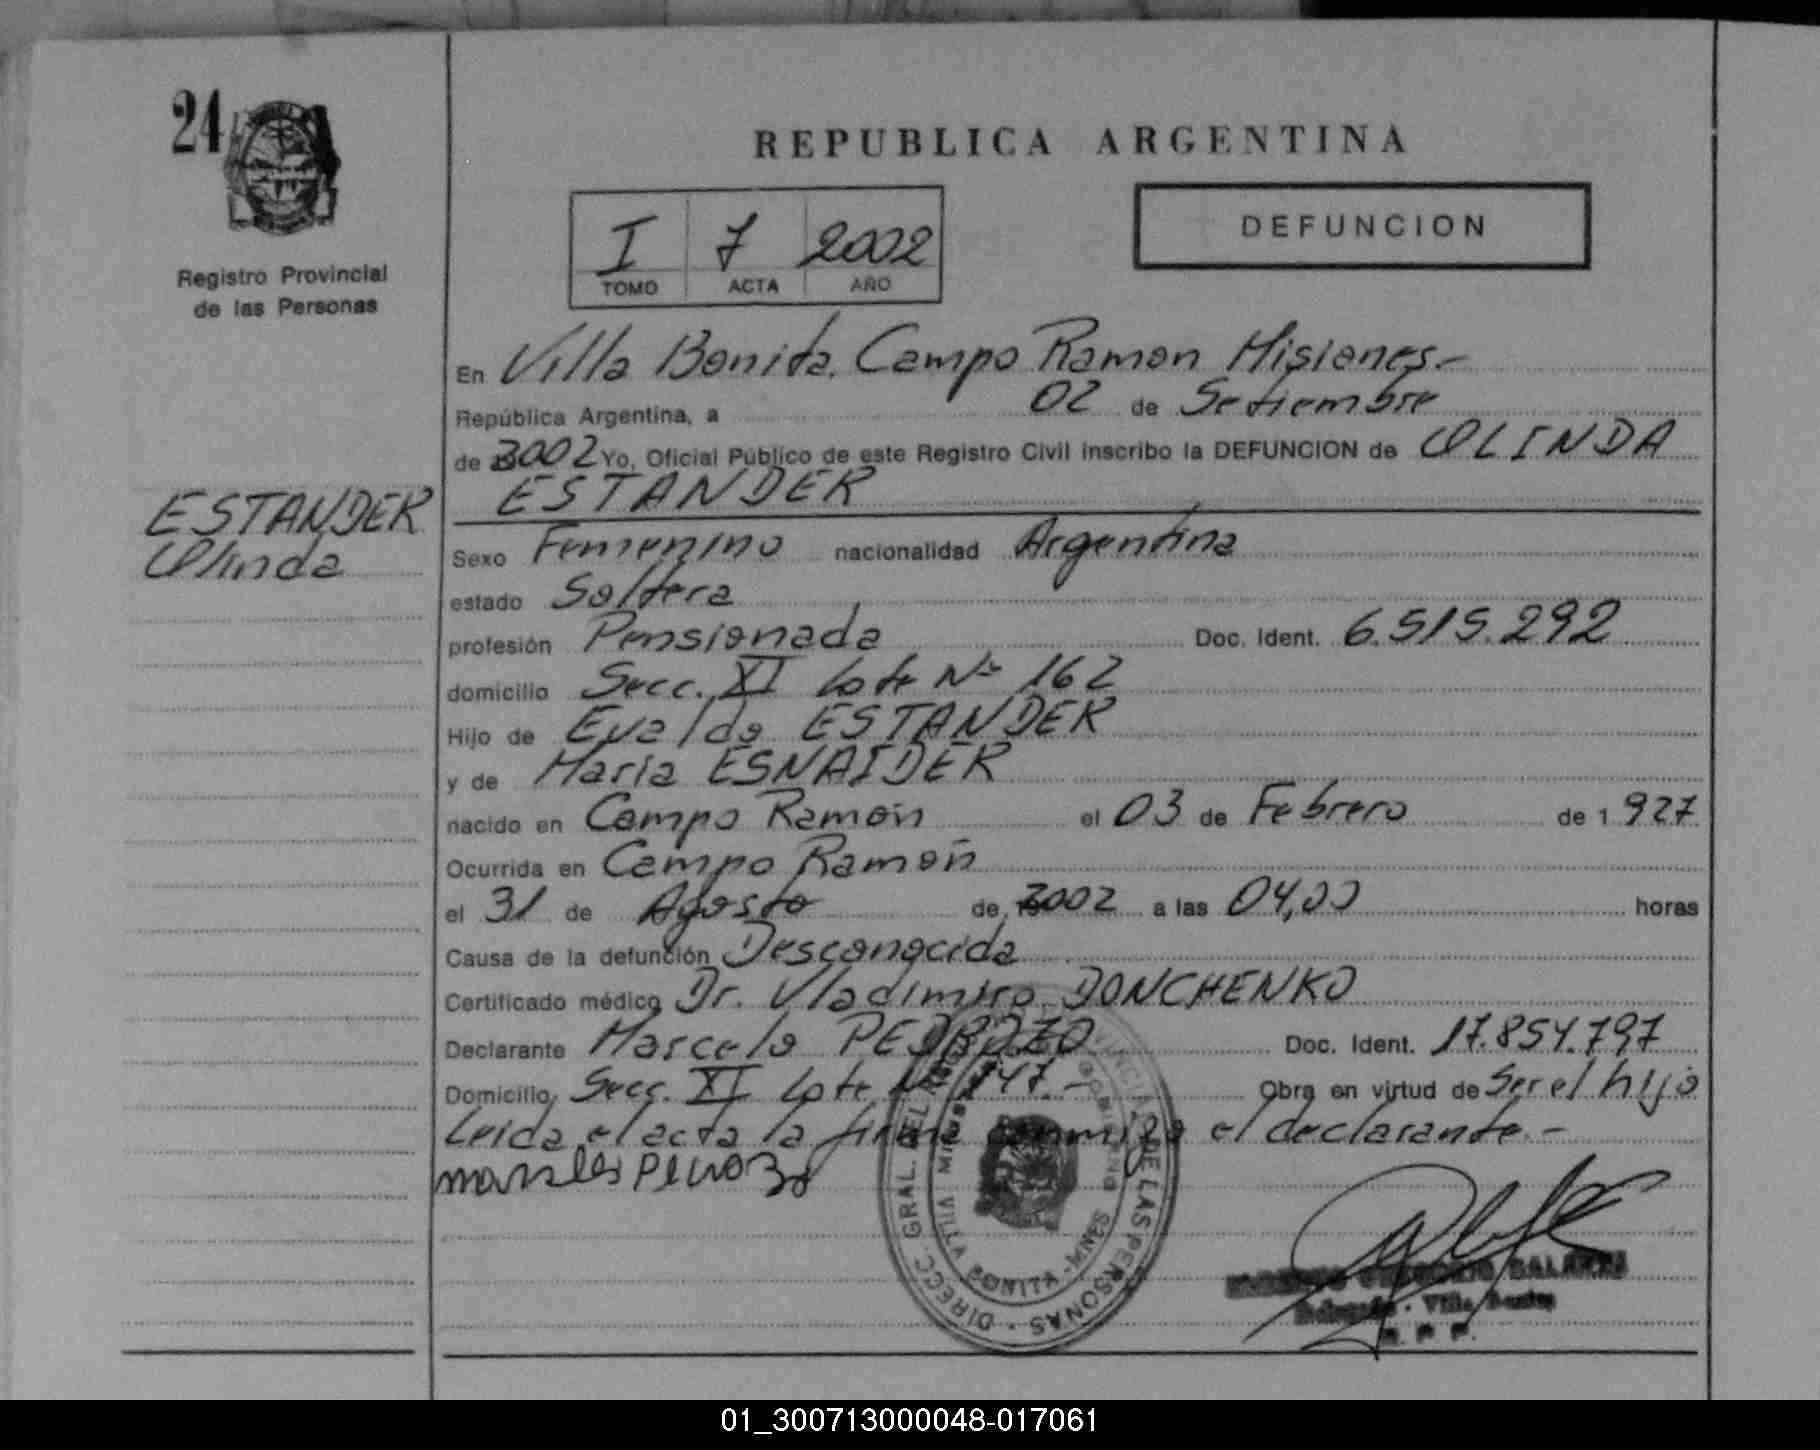 24
REPUBLICA ARGENTINA
I 7 2002
TOMO ACTA AÑO
DEFUNCION
Registro Provincial
de las Personas
ESTANDER
Olinda
En Villa Bonita. Campo Ramon Misiones.-
República Argentina, a 02 de Setiembre
de 2002 Yo, Oficial Público de este Registro Civil inscribo la DEFUNCION de OLINDA
ESTANDER
Sexo Femenino nacionalidad Argentina
estado Soltera
profesión Pensionada Doc. Ident. 6.515.292
domicilio Secc. XI Lote Nº 162
Hijo de Evaldo ESTANDER
y de Maria ESNAIDER
nacido en Campo Ramón el 03 de Febrero de 1 927
Ocurrida en Campo Ramón
el 31 de Agosto de 2002 a las 04,00 horas
Causa de la defunción Desconocida
Certificado médico Dr. Vladimiro DONCHENKO
Declarante Marcelo PEDROZO Doc. Ident. 17.854.797
Domicilio Secc. XI Lote Nº 147.- Obra en virtud de Ser el hijo
Leida el acta la firma conmigo el declarante.-
DIRECC. GRAL. DEL PROVINCIAL DE LAS PERSONAS
VILLA BONITA - MNES
Delegado - Villa Bonita
R. P. P.
01_300713000048-017061